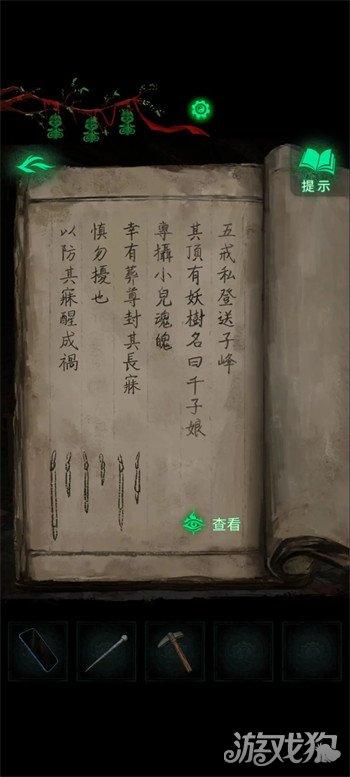 提示
五戒私登送子峰
其頂有妖樹名曰千子娘
專攝小兒魂魄
幸有葬尊封其長寐
慎勿擾也
以防其寐醒成禍
查看
游戏狗